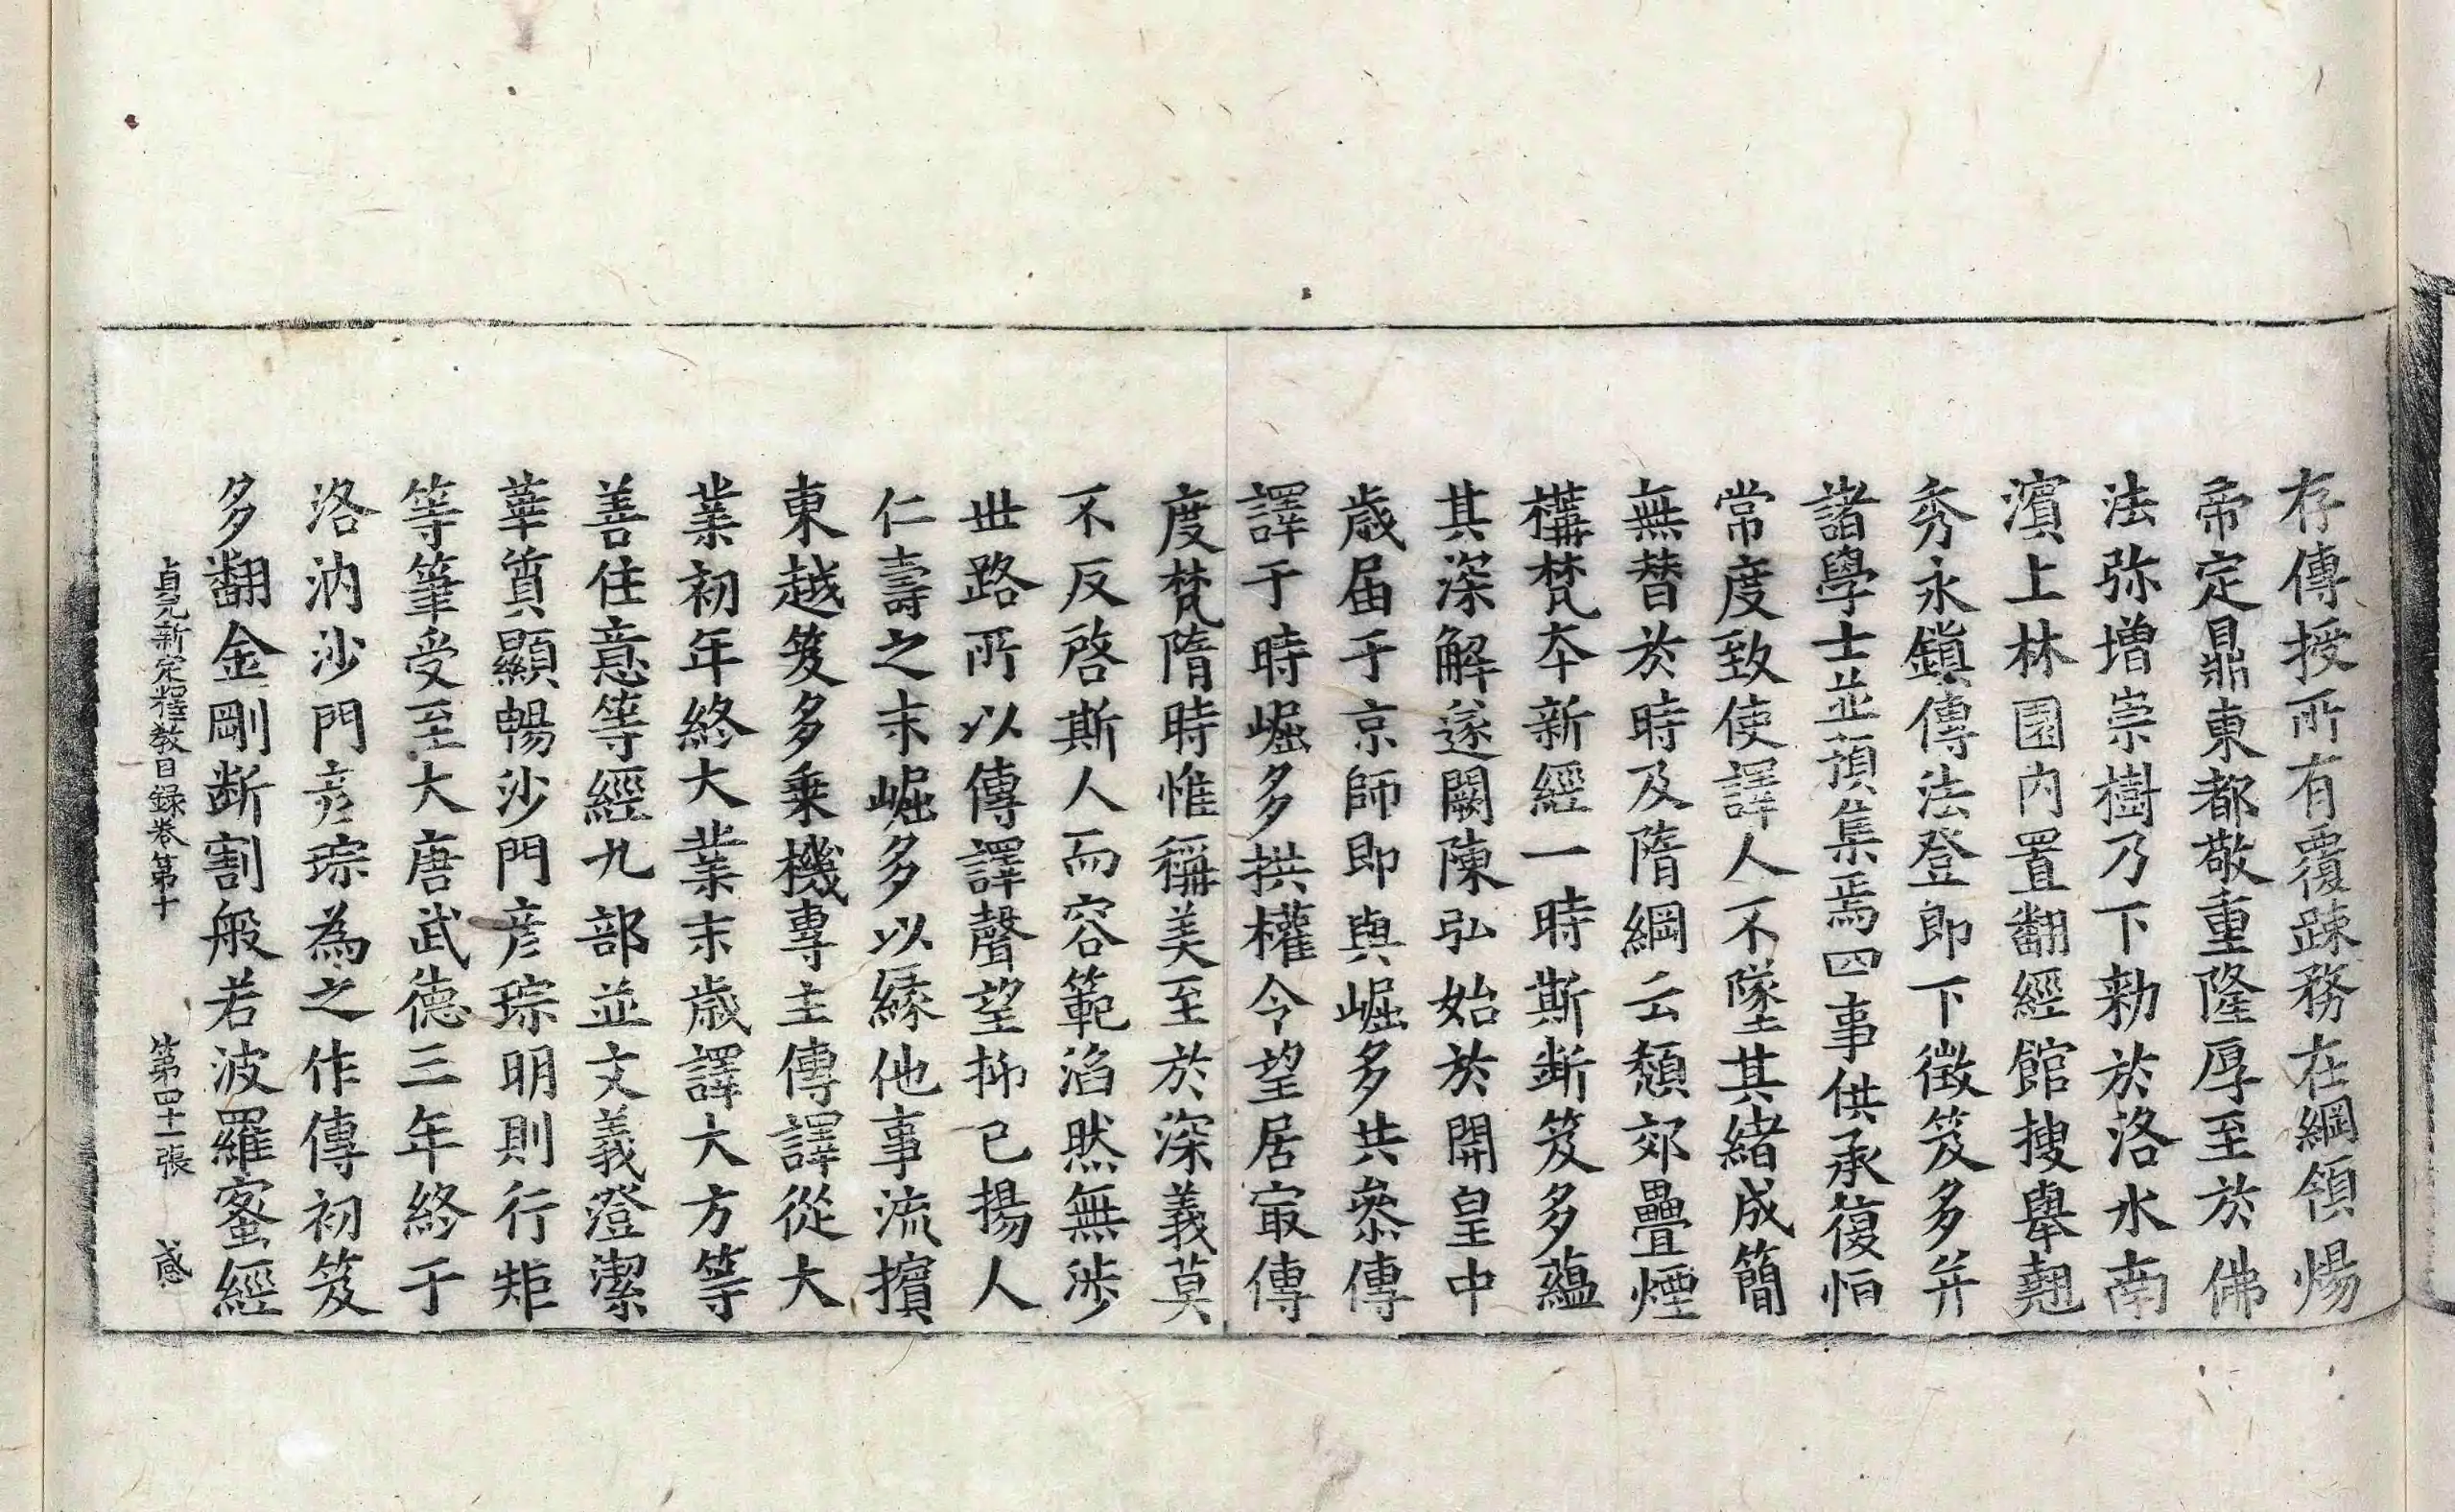 存傳授所有覆踈務在綱領煬
帝定鼎東都敬重隆厚至於佛
法弥增崇樹乃下勑於洛水南
濱上林園內置翻經館搜舉翹
秀永鎮傳法登即下徵笈多并
諸學士並預集焉四事供承復恒
常度致使譯人不墜其緒成簡
無替於時及隋綱云頹郊壘煙
構梵夲新經一時斯斷笈多蘊
其深解遂闕陳弘始於開皇中
歲届于京師即與崛多共叅傳
譯于時崛多拱權令望居㝡傳
度梵隋時惟稱美至於深義莫
不反啓斯人而容範滔然無涉
世路所以傳譯聲望抑已揚人
仁壽之末崛多以緣他事流擯
東越笈多乗機專主傳譯從大
業初年終大業末歲譯大方等
善住意等經九部並文義澄潔
華質顯暢沙門彦琮明則行矩
等筆受至大唐武德三年終于
洛汭沙門彦琮為之作傳初笈
多翻金剛斷割般若波羅蜜經
貞元新定釋教目録卷第十 第四十一張 感